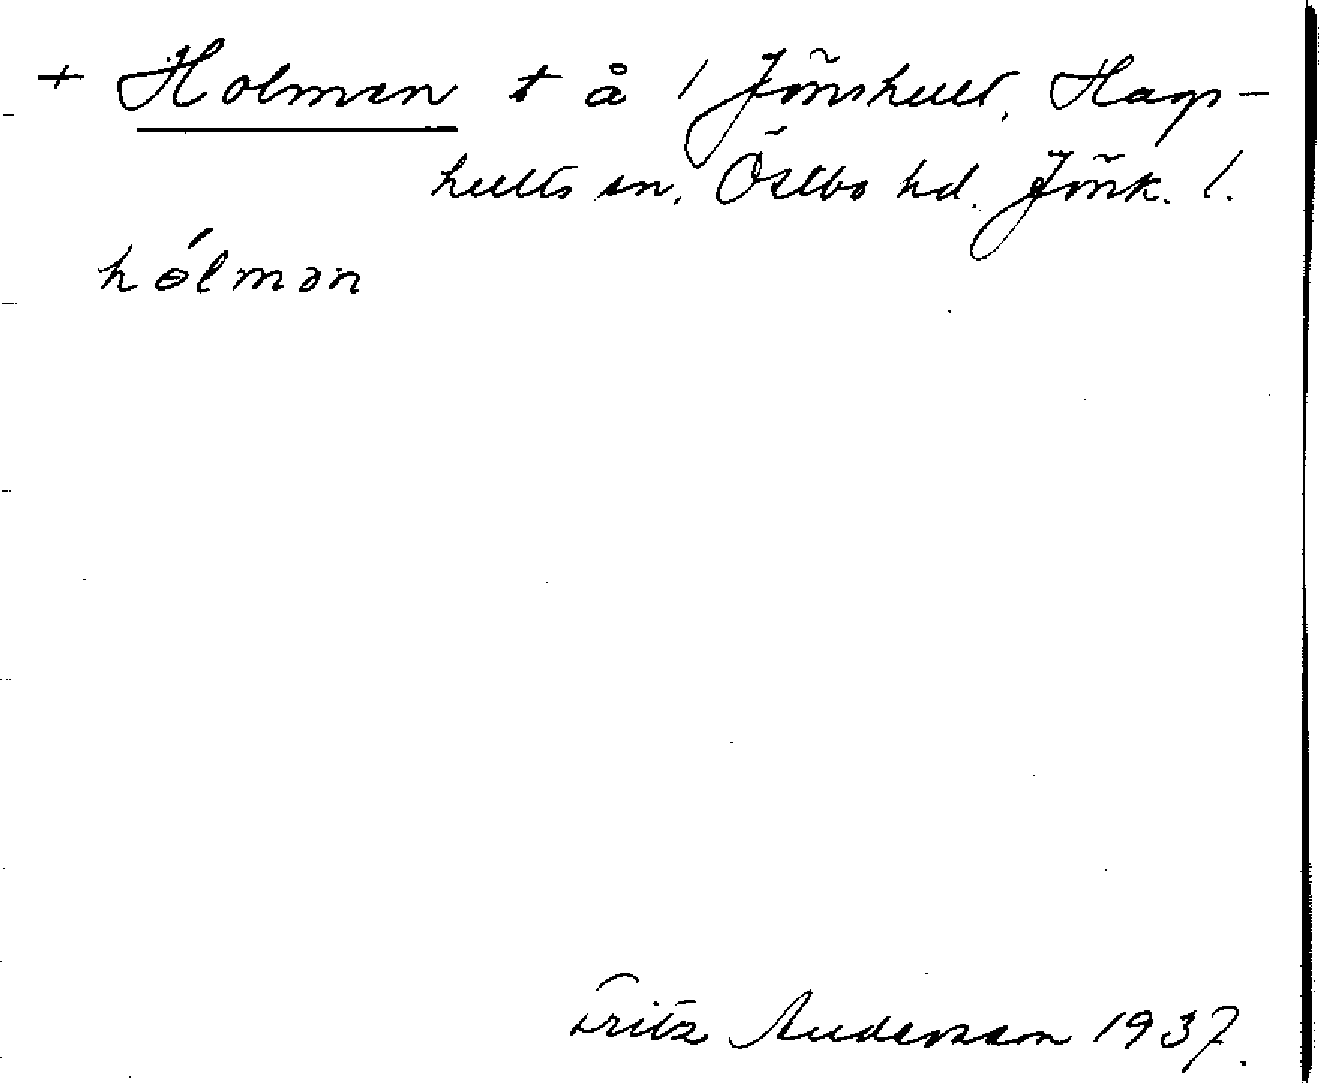 + Holmen t å i Jönshult, Hags-
hults sn, Östbo hd. Jönk. l.
hólmən
Fritz Anderson 1937.